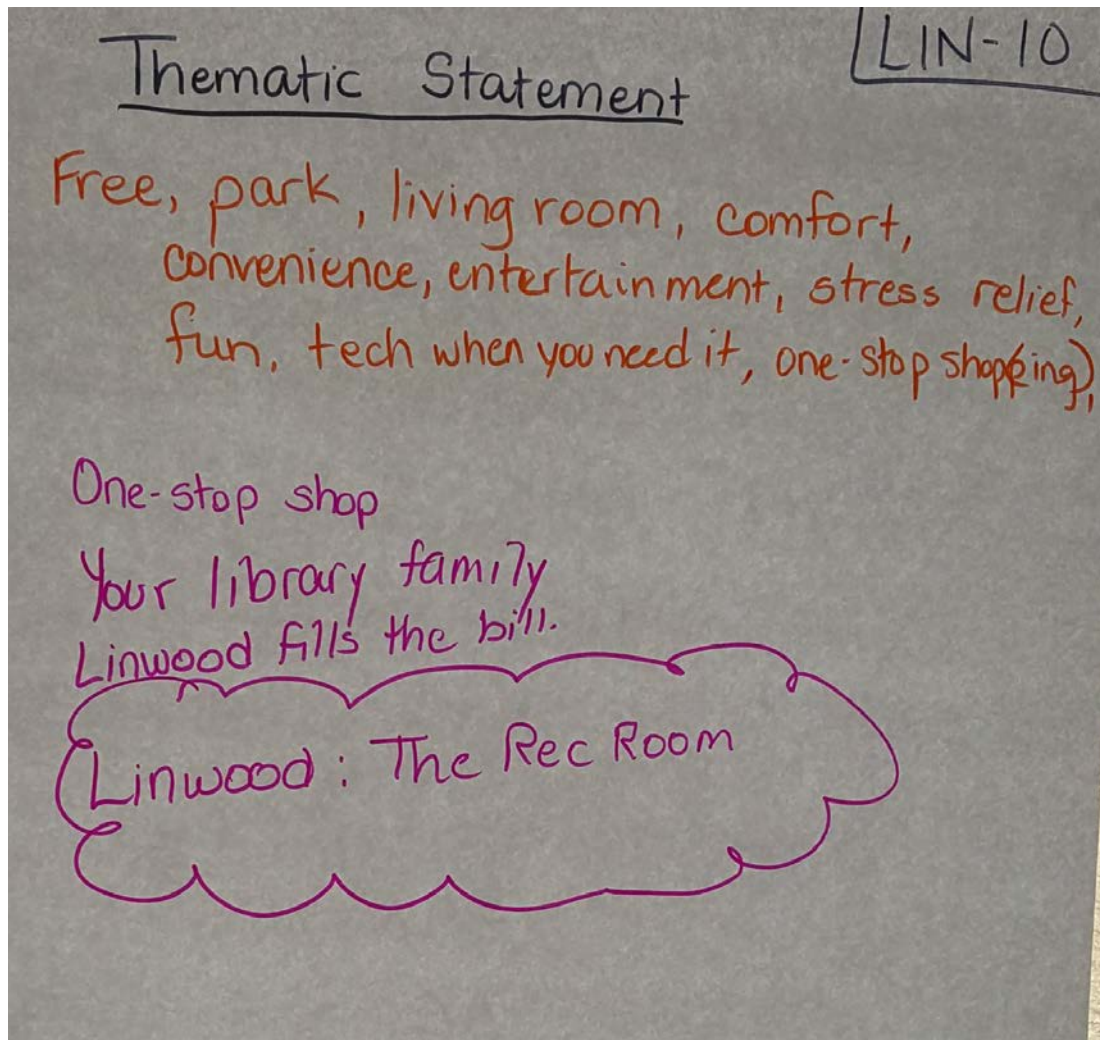 LIN-10
Thematic Statement
Free, park, living room, comfort,
convenience, entertainment, stress relief,
fun, tech when you need it, one-stop shop(ping),
One-stop shop
Your library family
Linwood fills the bill.
Linwood: The Rec Room